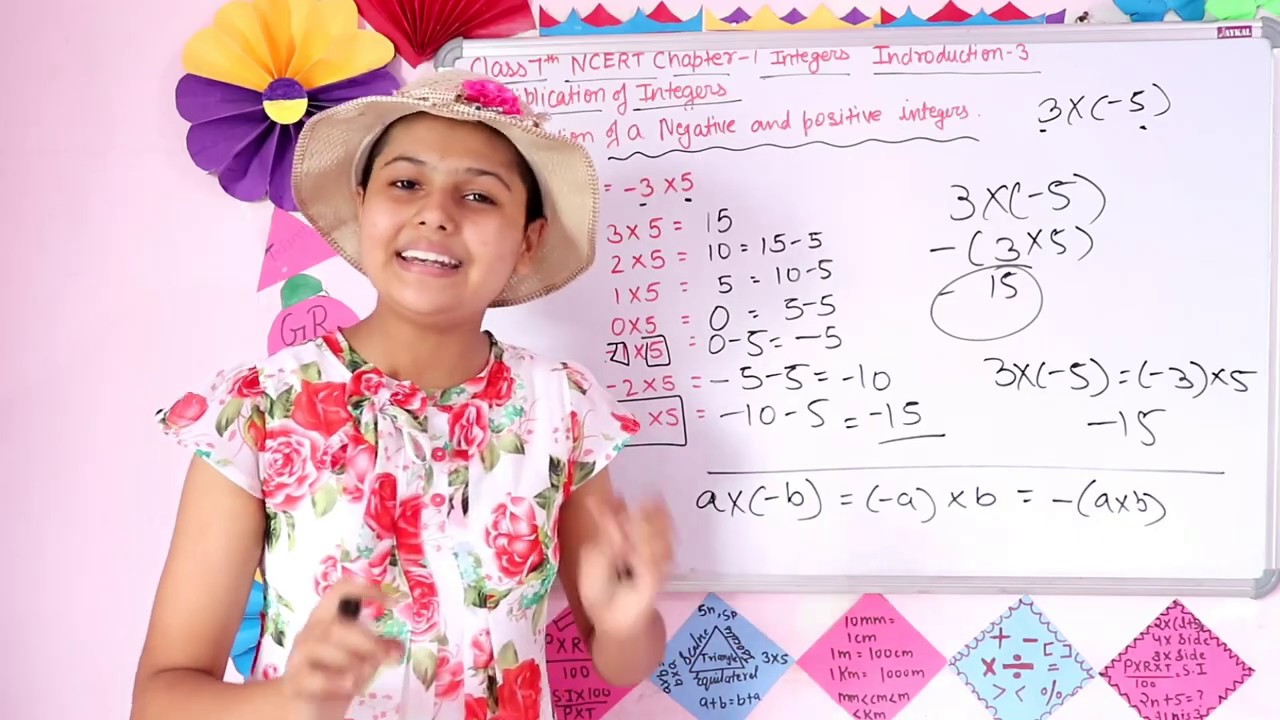 JAYKAL
Class 7th NCERT Chapter-1 Integers Indroduction-3
iplication of Integers
ion of a Negative and positive integers.
3×(-5)
= -3 ×5
3×5 = 15
2×5 = 10 = 15-5
1×5 = 5 = 10-5
0×5 = 0 = 5-5
-1×5 = 0-5= -5
-2×5 = -5-5= -10
×5 = -10-5 = -15
3×(-5)
-(3×5)
- 15
3×(-5)=(-3)×5
-15
a×(-b) = (-a)×b = -(a×b)
GR
PXRX
100
S.I×100
PXT
5n, sp
Triangle
Equilateral
a+b=b+a
3×5
10mm=
1cm
1m = 100cm
1Km = 1000m
mm<cm<m
<Km
+ - [ ]
× ÷ =
> < %
4x side
3x side
PXRXT = S.I
100
2n+5=?